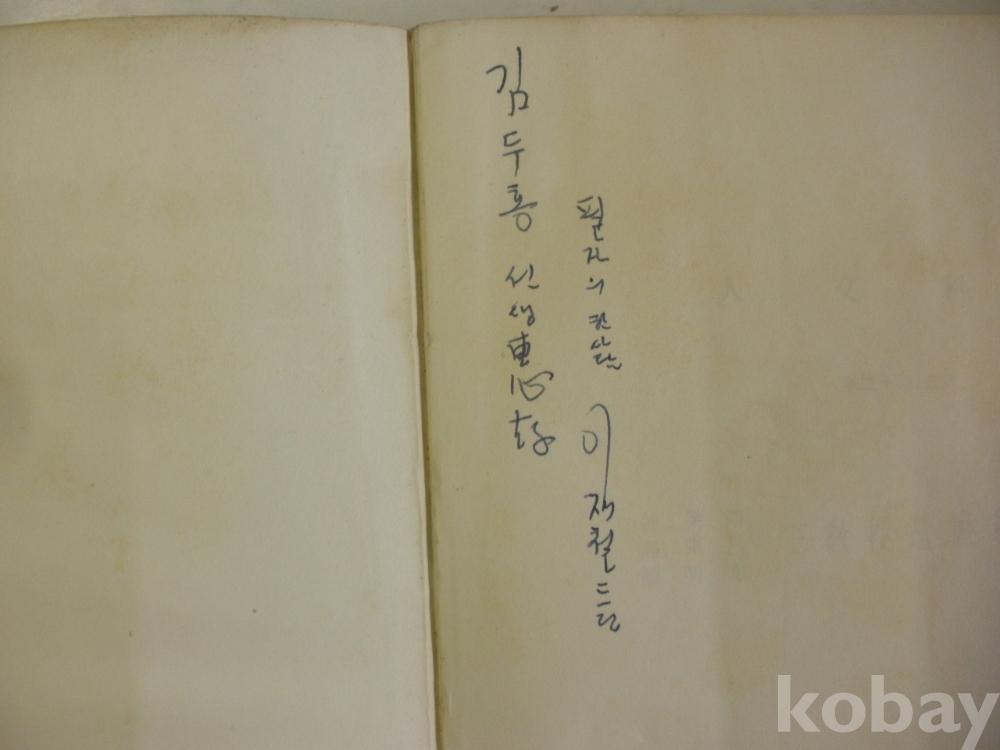 김두홍 선생 惠存
필자의 한 사람
이재철 드림
kobay